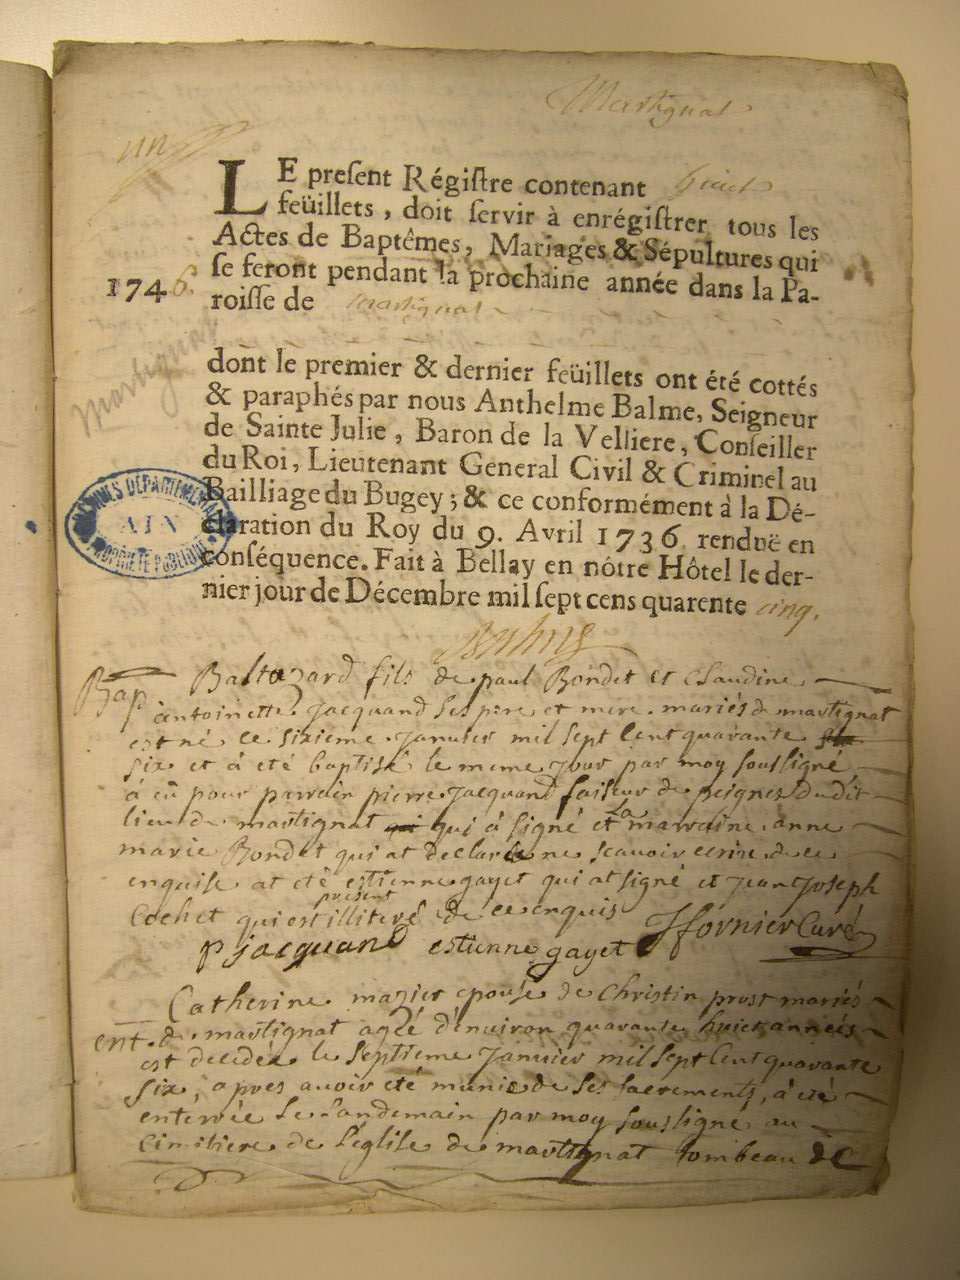 Martignat
un
LE present Régistre contenant huict
feüillets, doit servir à enrégistrer tous les
Actes de Baptêmes, Mariages & Sépultures qui
se feront pendant la prochaine année dans la Pa-
1746.
roisse de martignat
Martignat
dont le premier & dernier feüillets ont été cottés
& paraphés par nous Anthelme Balme, Seigneur
de Sainte Julie, Baron de la Velliere, Conseiller
du Roi, Lieutenant General Civil & Criminel au
Bailliage du Bugey; & ce conformément à la Dé-
claration du Roy du 9. Avril 1736. renduë en
conséquence. Fait à Bellay en nôtre Hôtel le der-
nier jour de Décembre mil sept cens quarente cinq.
ARCHIVES DÉPARTEMENTALES
AIN
PROPRIÉTÉ PUBLIQUE
Bap. Baltazard fils de paul Bondet et Claudine
antoinette Jacquand ses pere et mere mariés de martignat
est né ce sixieme Janvier mil sept cent quarante
six et à été baptisé le meme jour par moy soussigné
à eû pour parrain pierre Jacquand faiseur de peignes dudit
lieu de martignat qui à signé et La marraine anne
marie Bondet qui at declaré ne scavoir ecrire de ce
enquise at eté present estienne gayet qui at signé et Jean Joseph
Cochet qui est illiteré de ce enquis
p Jacquand estienne gayet Fornier Curé
Catherine mazier epouse de Christin prost mariés
ent. de martignat agée d'environ quarante huict années
est decedée le septieme Janvier mil sept cent quarante
six, apres avoir eté munie de ses sacrements, à eté
enterrée le landemain par moy soussigné au
cimitiere de l'église de martignat tombeau de